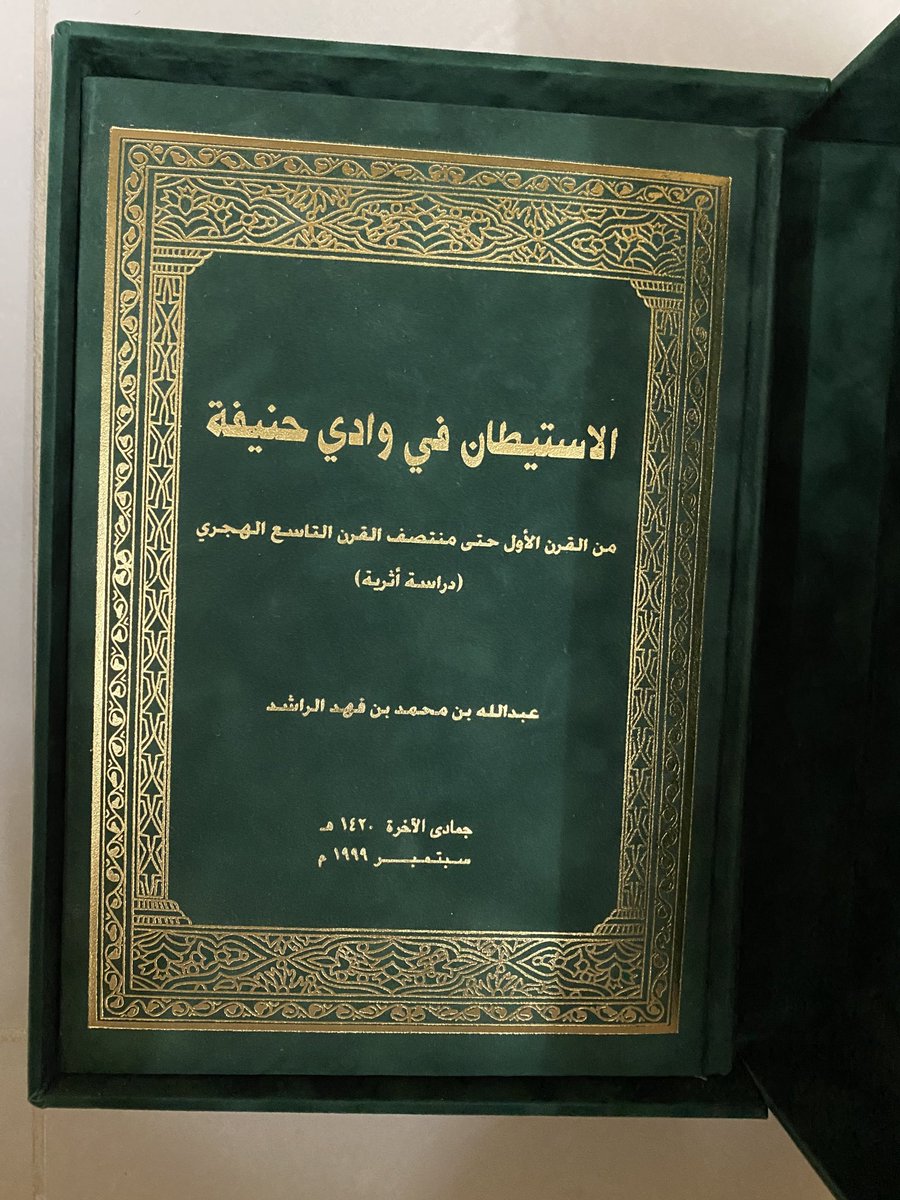 الاستيطان في وادي حنيفة
من القرن الأول حتى منتصف القرن التاسع الهجري
(دراسة أثرية)
عبدالله بن محمد بن فهد الراشد
جمادى الآخرة ١٤٢٠ هـ
سبتمبـــر ١٩٩٩ م